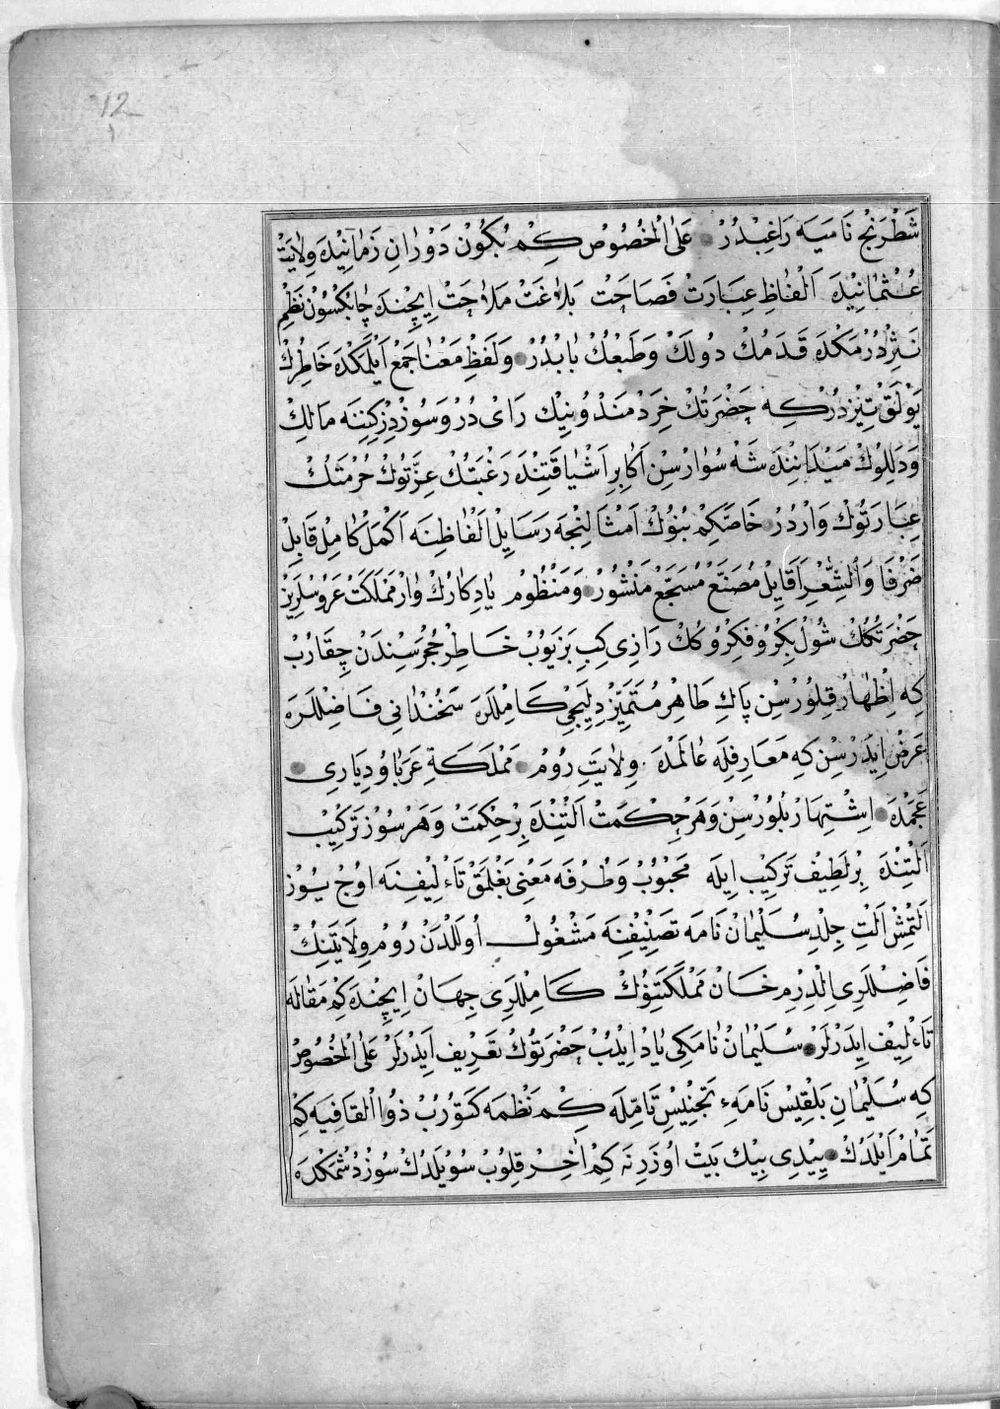 12
شَطْرَنْجْ نَامَیَه رَاغِبْدُرْ عَلَى الْخُصُوصْ كِمْ بُكُونْ دَوْرَانِ زَمَانِنْدَه وِلَايَتْ
عُثْمَانِیْدَه اَلْفَاظِ عِبَارَتْ فَصَاحَتْ بَلَاغَتْ مَلَاحَتْ اِیچِنْدَه چَابُكْسُوْنْ نَظْمِ
نَثِرْدُرْمَكْدَه قَدَمُكْ دُولَكْ وَطَبْعُكْ بَابْدُرْ وَلَفَظِْ مَعْنَا جَمْعْ اَیْلَمَكْدَه خَاطِرُكْ
یَوْلَقْ تِیْزدُرْ كِه حَضْرَتُكْ خِرَدْمَنْدْ وُنِیْكْ رَایْ دُرْ وَسُوزْدِزْكِنِنَه مَالِكْ
وَدَلِلُوكْ مَیْدَانِنْدَه شَه سُوَارْسِنْ اَكَابِرْ اِشْتِیَاقَتِنْدَه رَغْبَتُكْ عِزَّتُوكْ حُرْمَتُكْ
عِبَارَتُوكْ وَارْدُرْ خَاصَّكِمْ بُنُوكْ اَمْثَالِنْجَه رَسَایِلْ اَلْفَاظِنَه اَكْمَلْ كَامِلْ قَابِلْ
ضَرْفَا وَالشِّعْرِ اَقَایِلْ مُصَنَّعْ مُسَجَّعْ مَنْشُورْ وَمَنْظُومْ یَادِكَارُكْ وَارْ مَمْلَكَتْ عَرُوسْلَرِیْز
حَضْرَتُكُكْ شُولْ بِكْرُ وفِكْرُوكُكْ رَازِی كِبِ بَزَیُوبْ خَاطِرْ حُجْرَسِنْدَنْ چِقَارُبْ
كِه اِظْهَارْ قِلُورْسِنْ پَاكِ طَاهِرْ مُتَمَیِّزْ دِلِیَجِیْ كَامِلْلَرَه سَخُنْدَانِی فَاضِلْلَرَه
عَرضْ اِیدَرْسِنْ كِه مَعَارِفِلَه عَالَمْدَه وِلَایَتِ رُومْ مَمْلَكَةِ عَرَبُ اوُ دِیَارِی
عَجَمْدَه اِشْتِهَارْ بُلُورْسِنْ وَهَرْ حِكْمَتْ اَلْتِنْدَه بِرْ حِكْمَتْ وَهَرْ سُوزْ تَرْكِیْبْ
اَلْتِنْدَه بِرْ لَطِیْفْ تَرْكِیْبْ اِیلَه مَحْبُوبْ وَطُرْفَه مَعْنِی بَغْلَمَقْ تَاءْلِیْفِنَه اوُجْ یُوزْ
اَلْتْمِشْ اَلْتِ جِلْدِ سُلَیْمَانْ نَامَه تَصْنِیْفِنَه مَشْغُولْ اُولَلْدَنْ رُومْ وِلَایَتِنِكْ
فَاضِلْلَرِی اِلْدِرِمْ خَانْ مَمْلَكَتِنُوكْ كَامِلْلَرِی جِهَانْ اِیچِنْدَه كِمْ مَقَالَه
تَاءْلِیْفْ اِیدَرْلَرْ سُلَیْمَانْ نَامَكِی یَادْ اِیْدُبْ حَضْرَتُوكْ تَعْرِیفْ اَیدَرْلَرْ عَلَى الْخُصُوصْ
كِه سُلَیْمَانِ بَلْقِیْسْ نَامَهءِ تَجْنِیْسِ تَامِّلَه كِمْ نَظْمَه كَتُورُبْ ذُو الْقَافِیَه كِمْ
تَمَامْ اَیْلَدُكْ یِیْدِی بِیْكْ بَیْتْ اوُزَرِنَه كِمْ اٰخِرْ قِلُوبْ سُوْیلَدُكْ سُوزْ دُشْمَكْدَه